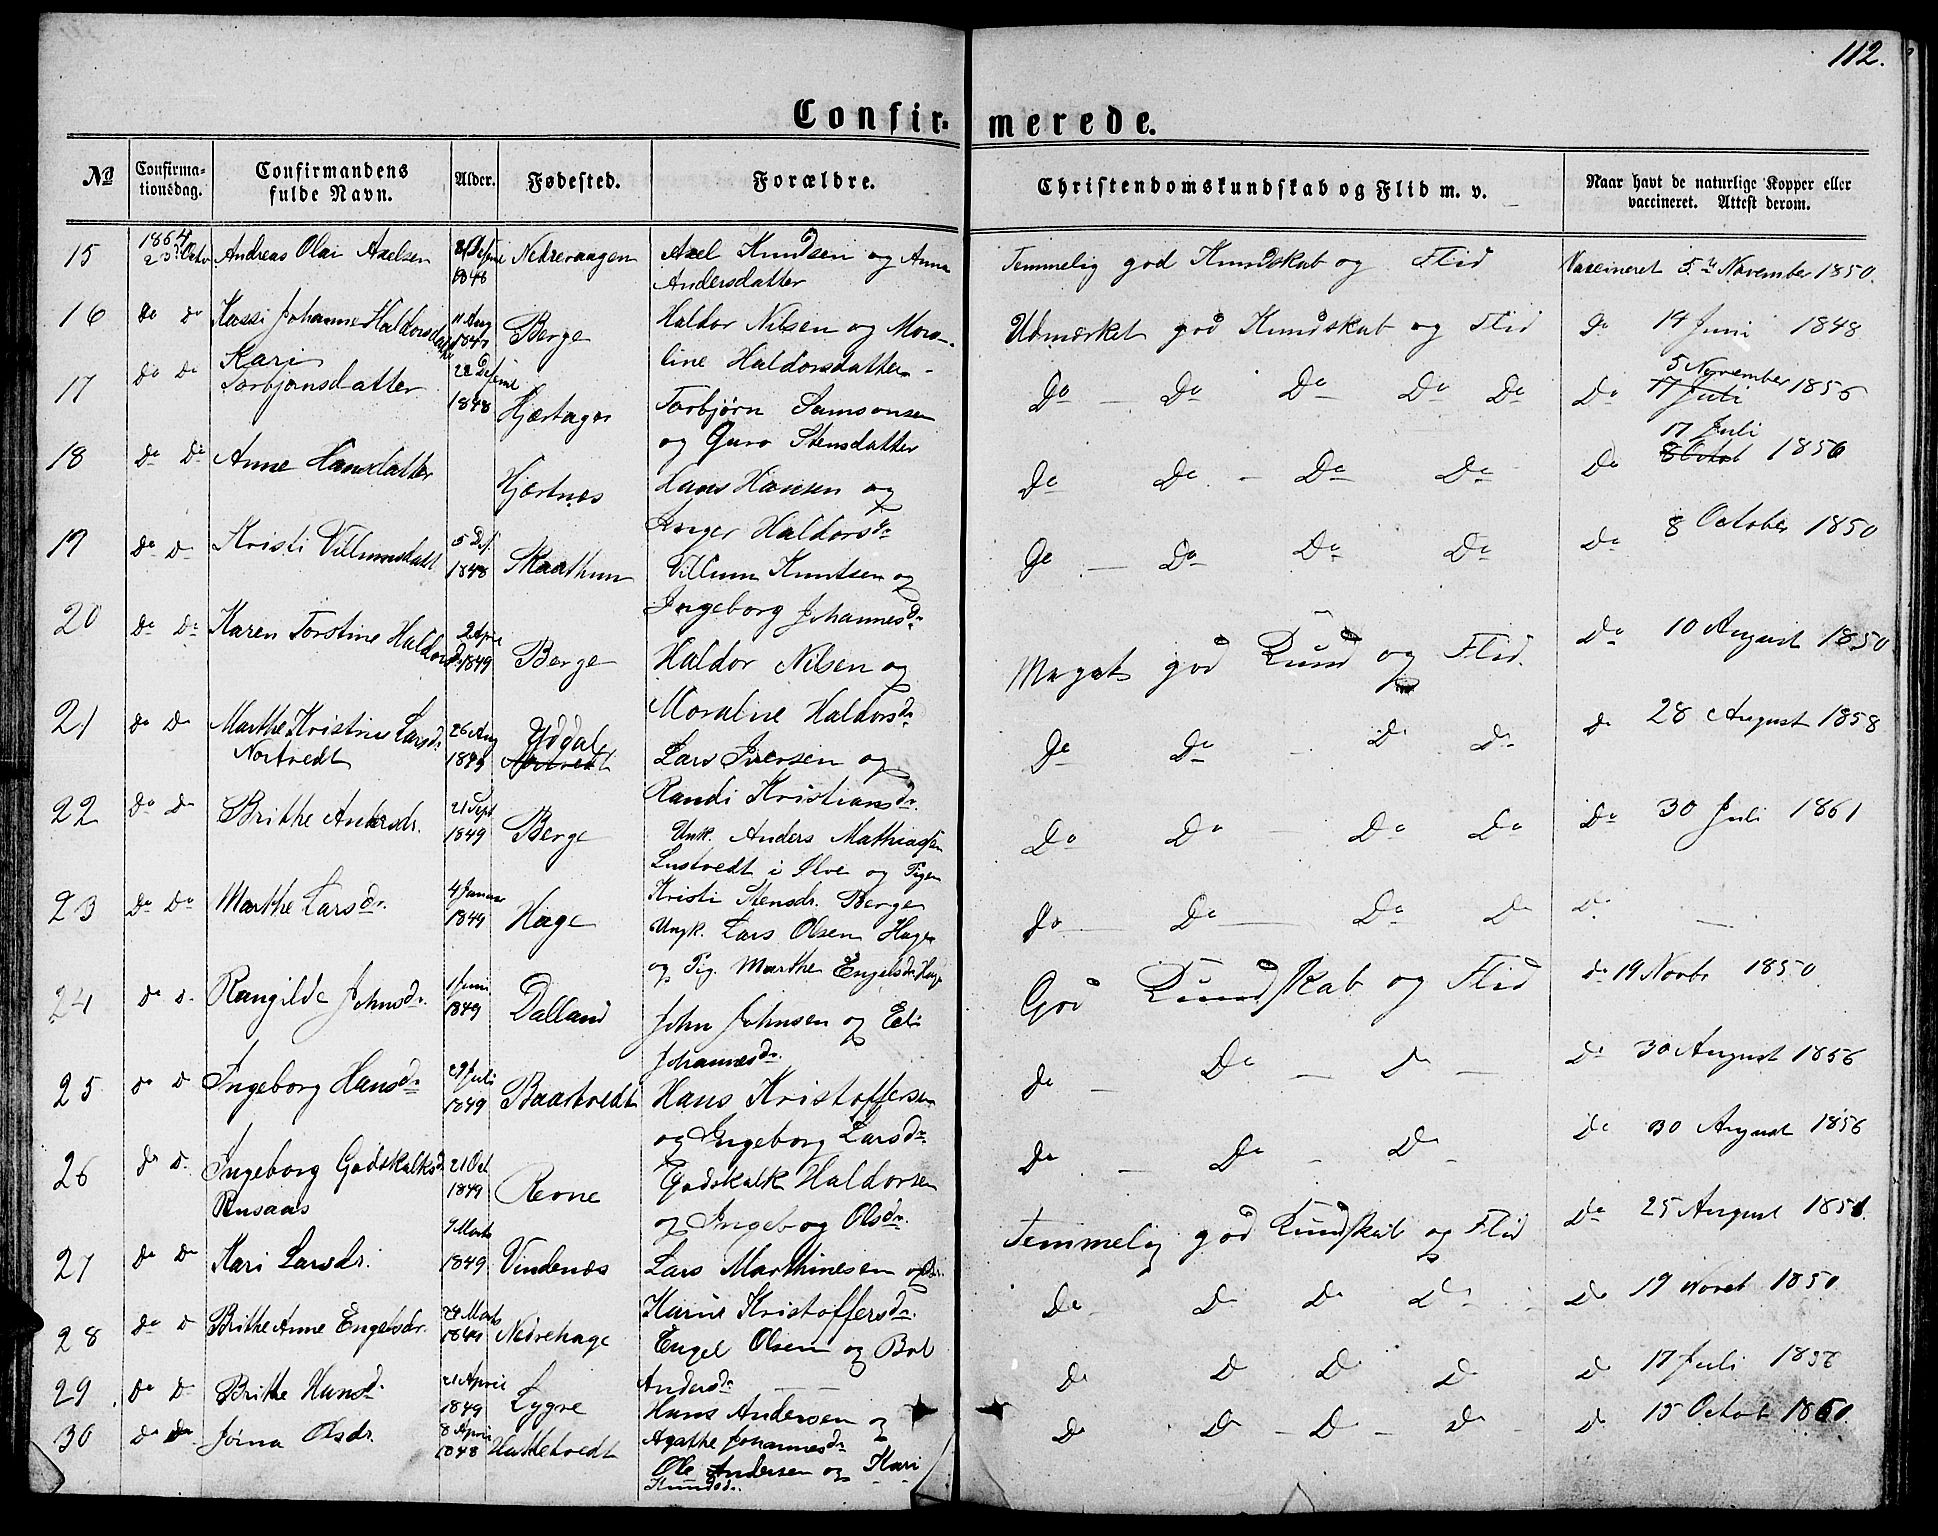 112.
Confir- merede.
№ Confirma-tionsdag. Confirmandens fulde Navn. Alder. Fødested. Forældre. Christendomskundskab og Flid m. v. Naar havt de naturlige Kopper eller vaccineret. Attest derom.
15 1864 23 Octo Andreas Olai Axelsen 1848 Nedrevaagen Axel Knudsen og Anna Andersdatter Temmelig god Kundskab og Flid Vaccineret 5te November 1850.
16 Do Do Kassi Johanne Haldorsdatter 11 Aug Berge Haldor Nilsen og Mora-line Haldorsdatter Udmærket god Kundskab og Flid Do 14 Juni 1848
17 Do Do Kari Torbjønsdatter 22 Desemt 1848 Hjertager Torbjørn Samsonsen og Guro Stensdatter Do - Do Do Do Do Do 5 November 17 Juli 1856
18 Do Do Anne Hansdatter Hjertnes Hans Hansen og Inger Haldorsdr Do Do - Do Do Do 17 Juli 8 Octob 1856
19 Do Do Kristi Villumsdatt 5 Des. 1848 Skaathun Villum Knutsen og Ingeborg Johannesdr Do - Do Do Do Do 8 October 1850
20 Do Do Karen Torstine Haldorsdr 2 April 1849 Berge Haldor Nilsen og Moraline Haldorsdr Meget god Kund og Flid. Do 10 August 1850
21 Do Do Marthe Kristine Larsdr Nortvedt 26 Aug Yddal Nortvedt Lars Iversen og Randi Kristiansdr. Do Do - Do Do Do 28 August 1858
22 Do Do Brithe Andersdr. 21 Sept 1849 Berge Unk. Anders Mathiassen Lustvedt i Ølve og Pigen Kristi Stensdr. Berge Do Do - Do Do Do 30 Juli 1861
23 Do Do Marthe Larsdr. 4 Januar 1849 Hage Ungk. Lars Olsen Hage og Pig. Marthe Engelsdr Hage Do - Do - Do Do Do -
24 Do D. Rangilde Johnsdr. 1 Juni 1849 Dalland John Johnsen og Eli Johannesdr. God Kundskab og Flid Do 19 Novbr 1850
25 Do D Ingeborg Hansdr 29 Juli 1849 Baartvedt Hans Kristoffersen og Ingeborg Larsdr. Do - Do - D - Do 30 August 1856
26 Do D. Ingeborg Godskalksdr Rusaas 21 Oct 1849 Revne Godskalk Haldorsen og Ingeborg Olsdr. Do - Do - D - Do 30 August 1856
27 Do Do Kari Larsdr. 9 Marts 1849 Vindenes Lars Marthinesen og Karin Kristoffersdr. Temmelig god Kundskab og Flid Do 25 August 1851.
28 Do D Brithe Anne Engelsdr. 24 Marts 1849 Nedrehage Engel Olsen og Brl Andersdr Do - D Do Do Do 19 Novbt 1850
29. Do D Brithe Hansd. 21 April 1849 Lygre Hans Andersen og Agathe Johannesdr Do D D D D 17 Juli 1856
30 Do Do Jøina Olsdr. 8 April 1848 Hattetvedt Ole Andersen og Kari Knudsdr. Do D - D - D - D 15 Octob 1850.